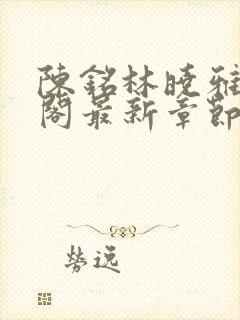 陳銘林曉雅
閣最新章節
勞逸